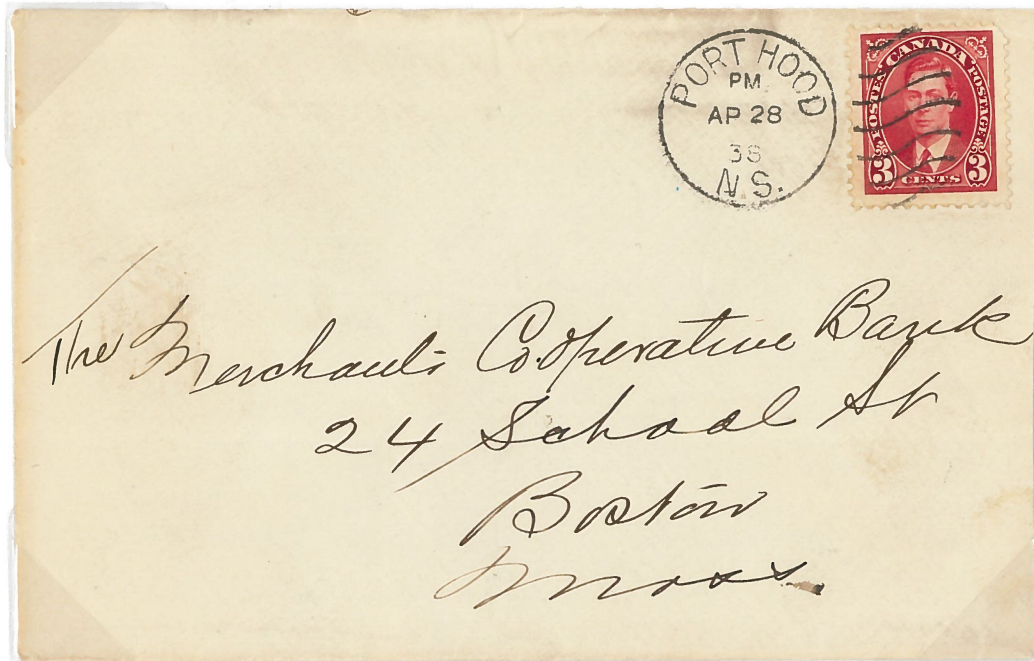 PORT HOOD
PM
AP 28
38
N.S.
POSTES CANADA POSTAGE
3 CENTS 3
The Merchants Co.operative Bank
24 School St
Boston
Mass.